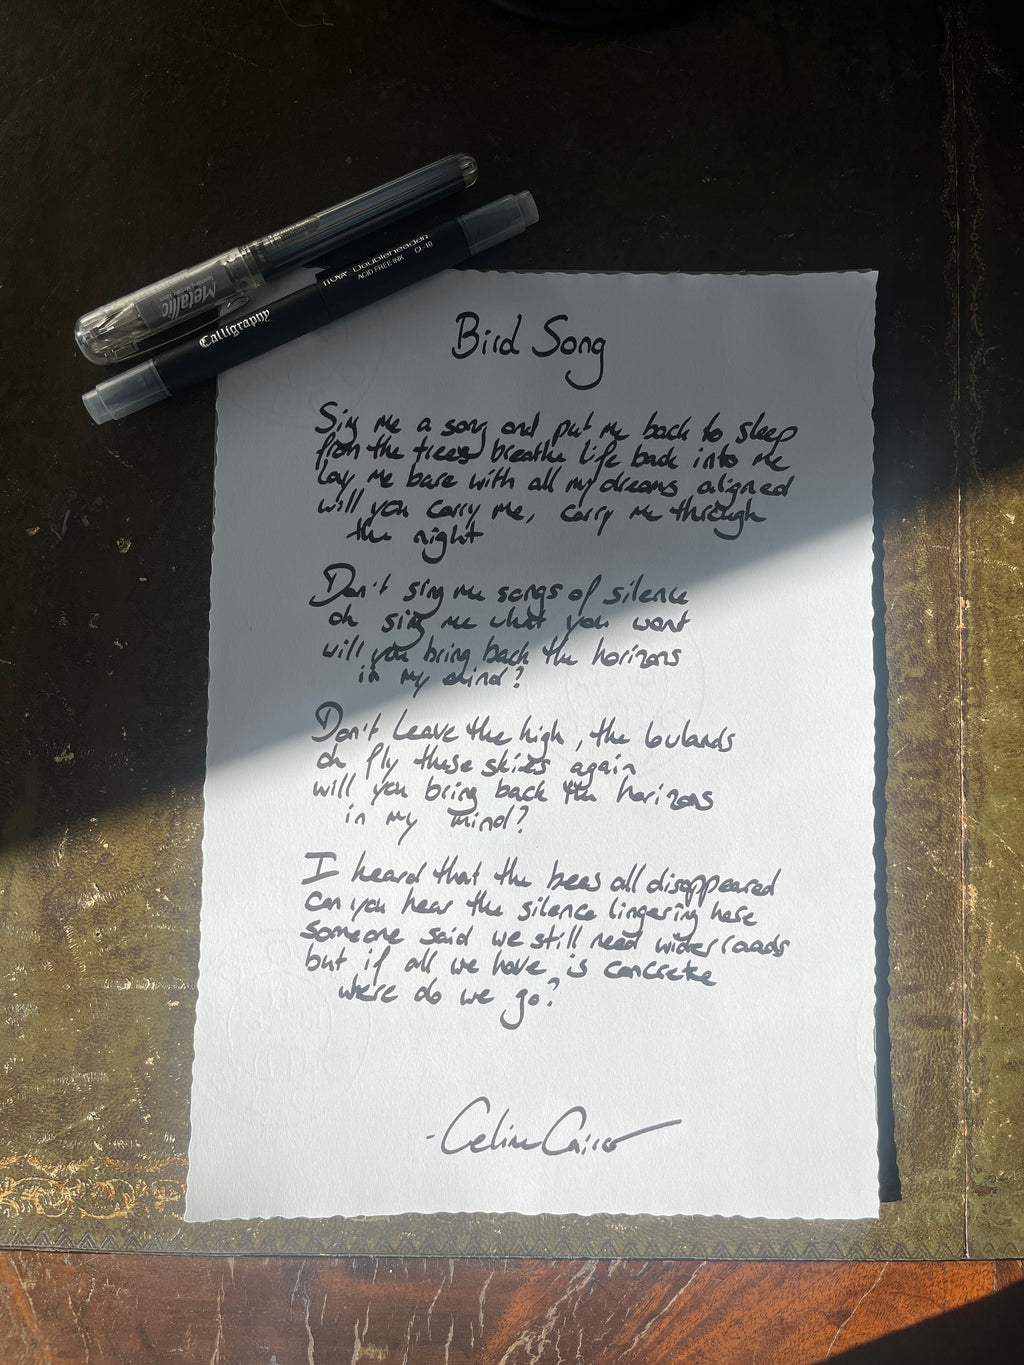 Metallic
Calligraphy
Doubleheader
ACID FREE INK CL-10
Bird Song
Sing me a song and put me back to sleep
from the trees breathe life back into me
lay me bare with all my dreams aligned
will you carry me, carry me through
the night
Don't sing me songs of silence
oh sing me what you want
will you bring back the horizons
in my mind?
Don't leave the high, the lowlands
oh fly these skies again
will you bring back the horizons
in my mind?
I heard that the bees all disappeared
can you hear the silence lingering here
someone said we still need wider roads
but if all we have is concrete
where do we go?
- Celine Cairo